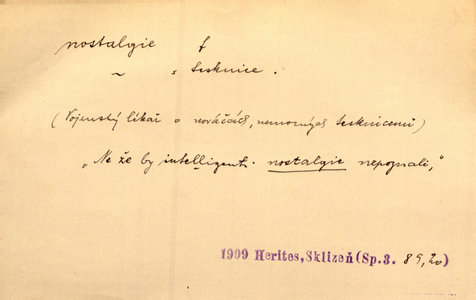 nostalgie f
~ s tesknice.
(Vojenský lékař o nováčcích, nemocných tesknicemi)
„Ne že by intelligent. nostalgie nepoznali,"
1909 Herites, Sklizeň (Sp. 3. 89, 20)